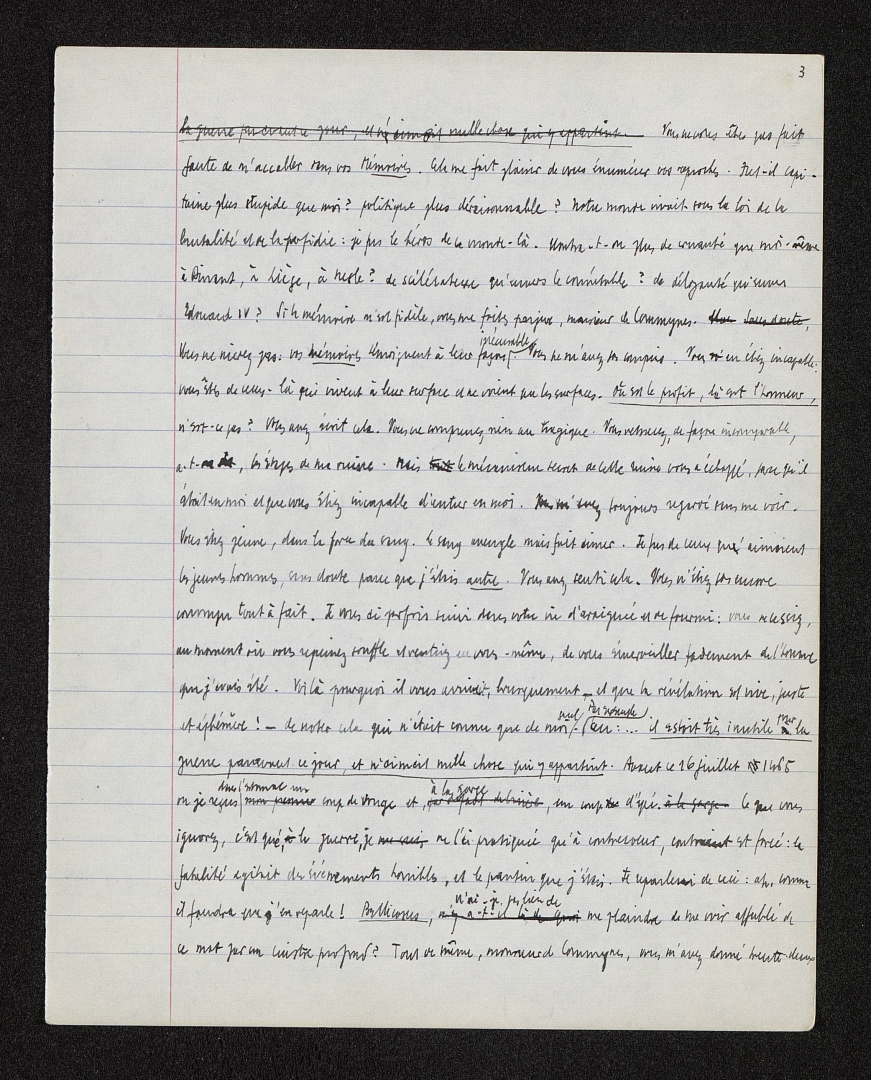 3
la guerre par avant ce jour, et n'aimoit nulle chose qui y appartint. Vous ne vous êtes pas fait
faute de m'accabler dans vos Mémoires. Cela me fait plaisir de vous énumérer vos reproches. Fut-il capi-
taine plus stupide que moi? politique plus déraisonnable? Notre monde vivait sous la loi de la
brutalité et de la perfidie: je fus le héros de ce monde-là. Montra-t-on plus de cruauté que moi-même
à Dinant, à Liège, à Nesle? de scélératesse qu'envers le connétable? de déloyauté qu'envers
Edouard IV? Si la mémoire m'est fidèle, vous me faites parjure, monsieur de Commynes. Sans doute,
irrécusable
Vous ne nierez pas: vos mémoires témoignent à leur façon Vous ne m'avez pas compris. Vous en étiez incapable:
vous êtes de ceux-là qui vivent à leur surface et ne voient que les surfaces. Où est le profit, là est l'honneur,
n'est-ce pas? Vous avez écrit cela. Vous ne comprenez rien au tragique. Vous retracez, de façon incomparable,
a-t-on dit, les étapes de ma ruine. Mais tout le mécanisme secret de cette ruine vous a échappé, parce qu'il
était en moi et que vous étiez incapable d'entrer en moi. Vous m'avez toujours regardé sans me voir.
Vous étiez jeune, dans la force du sang. Le sang aveugle mais fait aimer. Je fus de ceux qu'aimaient
les jeunes hommes, sans doute parce que j'étais autre. Vous avez senti cela. Vous n'étiez pas encore
corrompu tout à fait. Je vous ai parfois suivi dans votre vie d'araignée et de fourmi: vous ne cessiez,
au moment où vous repreniez souffle et rentriez en vous-même, de vous émerveiller fadement de l'homme
que j'avais été. Voilà pourquoi il vous arrivait, brusquement – et que la révélation est vive, juste
seul par exemple pour
et éphémère! – de noter cela qui n'était connu que de moi:... il estoit très inutile à la
guerre paravant ce jour, et n'aimoit nulle chose qui y appartint. Avant ce 16 juillet 1465
dans l'estomac un à la gorge
où je reçus mon premier coup de vouge et, , un coup d'épée à la gorge ce que vous
ignorez, c'est que, la guerre, je ne l'ai pratiquée qu'à contrecoeur, contraint et forcé: la
fatalité agitait des événements horribles, et le pantin que j'étais. Je reparlerai de ceci: ah, comme
n'ai-je pas lieu de
il faudra que j'en reparle! Bellicosus, n'y a-t-il là de quoi me plaindre de me voir affublé de
ce mot par un cuistre profond? Tout de même, monsieur de Commynes, vous m'avez donné trente-deux